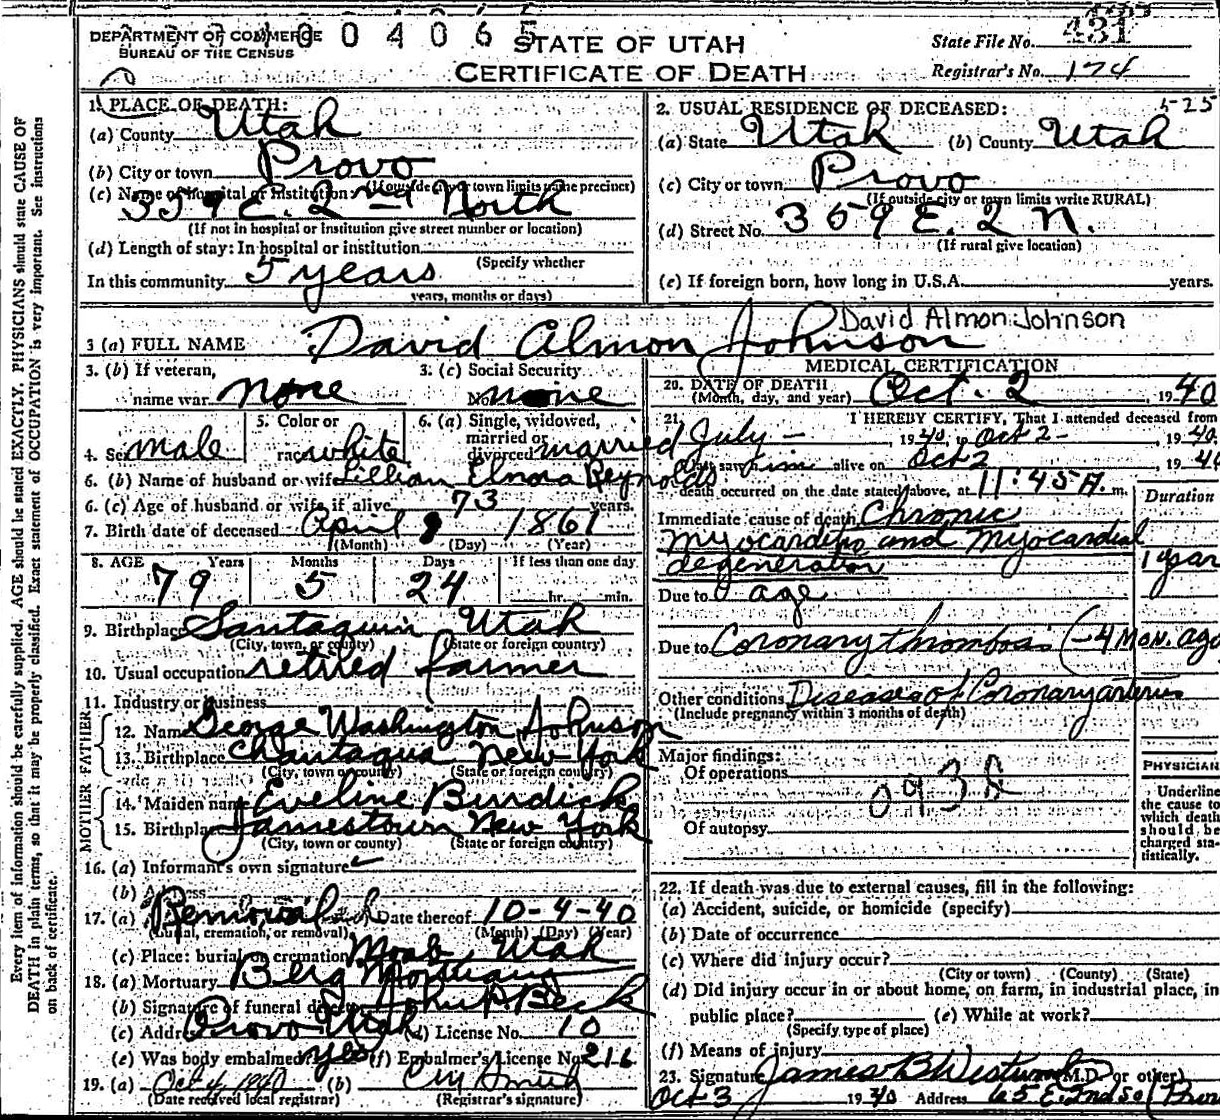 DEPARTMENT OF COMMERCE
BUREAU OF THE CENSUS
0 4 0 6 5
STATE OF UTAH
CERTIFICATE OF DEATH
State File No. 431
Registrar's No. 174
1. PLACE OF DEATH:
(a) County Utah
(b) City or town Provo
(If outside city or town limits name precinct)
(c) Name of hospital or institution
359 E. 2nd North
(If not in hospital or institution give street number or location)
(d) Length of stay: In hospital or institution
(Specify whether
In this community 5 years
years, months or days)
2. USUAL RESIDENCE OF DECEASED:
(a) State Utah (b) County Utah
(c) City or town Provo
(If outside city or town limits write RURAL)
(d) Street No. 359 E. 2 N.
(If rural give location)
(e) If foreign born, how long in U.S.A. years.
3 (a) FULL NAME David Almon Johnson
David Almon Johnson
3. (b) If veteran, name war none
3. (c) Social Security No. none
4. Sex male
5. Color or race white
6. (a) Single, widowed, married or divorced married
6. (b) Name of husband or wife Lillian Elnora Reynolds
6. (c) Age of husband or wife if alive 73 years.
7. Birth date of deceased April 8 1861
(Month) (Day) (Year)
8. AGE Years Months Days If less than one day
79 5 24 hr. min.
9. Birthplace Santaquin Utah
(City, town, or county) (State or foreign country)
10. Usual occupation retired farmer
11. Industry or business
FATHER
12. Name George Washington Johnson
13. Birthplace Chautaqua New York
(City, town or county) (State or foreign country)
MOTHER
14. Maiden name Eveline Burdick
15. Birthplace Jamestown New York
(City, town or county) (State or foreign country)
16. (a) Informant's own signature
(b) Address
17. (a) Removal Date thereof 10-4-40
(Burial, cremation, or removal) (Month) (Day) (Year)
(c) Place: burial or cremation Moab Utah
18. (a) Mortuary Berg Mortuary
(b) Signature of funeral director John P Beck
(c) Address Provo Utah (d) License No. 10
(e) Was body embalmed? yes (f) Embalmer's License No. 216
19. (a) Oct 4 1940 (b) Smith
(Date received local registrar) (Registrar's signature)
MEDICAL CERTIFICATION
20. DATE OF DEATH Oct. 2 1940
(Month, day, and year)
21. I HEREBY CERTIFY, That I attended deceased from
July - , 1940, to Oct 2 - , 1940
I last saw him alive on Oct 2 , 1940
death occurred on the date stated above, at 11:45 A. m.
Duration
Immediate cause of death Chronic
myocarditis and myocardial
degeneration 1 year
Due to age
Due to Coronary thrombosis (-4 mon. ago
Other conditions Diseases of Coronary arteries
(Include pregnancy within 3 months of death)
Major findings:
Of operations
Of autopsy
PHYSICIAN
Underline
the cause to
which death
should be
charged sta-
tistically.
22. If death was due to external causes, fill in the following:
(a) Accident, suicide, or homicide (specify)
(b) Date of occurrence
(c) Where did injury occur?
(City or town) (County) (State)
(d) Did injury occur in or about home, on farm, in industrial place, in
public place? (e) While at work?
(Specify type of place)
(f) Means of injury
23. Signature James B Westwood (M.D. or other)
Oct 3 1940 Address 65 E. 2nd So
Every item of information should be carefully supplied. AGE should be stated EXACTLY. PHYSICIANS should state CAUSE OF
DEATH in plain terms, so that it may be properly classified. Exact statement of OCCUPATION is very important. See instructions
on back of certificate.